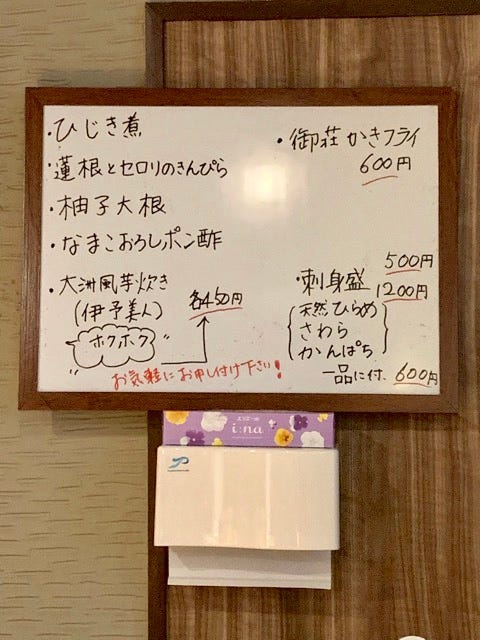 ・ひじき煮
・蓮根とセロリのきんぴら
・柚子大根
・なまこおろしポン酢
・大洲風芋炊き
(伊予美人)
ホクホク
各450円
お気軽にお申し付け下さい!
・御荘かきフライ
600円
500円
・刺身盛
1200円
天然ひらめ
さわら
かんぱち
一品に付、600円
エリエール
i:na